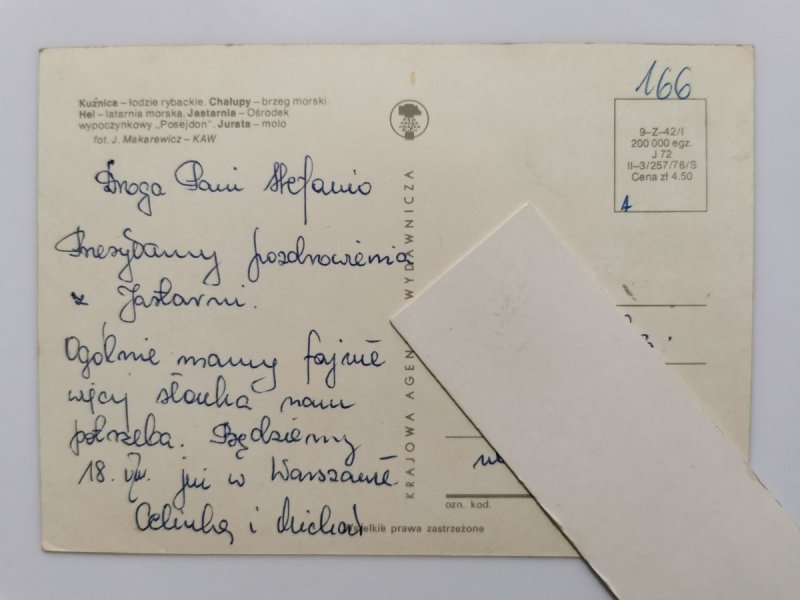 Kuźnica – łodzie rybackie. Chałupy – brzeg morski.
Hel – latarnia morska. Jastarnia – Ośrodek
wypoczynkowy „Posejdon”. Jurata – molo
fot. J. Makarewicz – KAW
Droga Pani Stefanio
Przesyłamy pozdrowienia
z Jastarni.
Ogólnie mamy fajnie
więcej słonka nam
potrzeba. Będziemy
18. już w Warszawie.
i Michał
KRAJOWA AGEN WYDAWNICZA
166
9–Z–42/I
200 000 egz.
J 72
II–3/257/76/S
Cena zł 4.50
A
ozn. kod.
Wszelkie prawa zastrzeżone